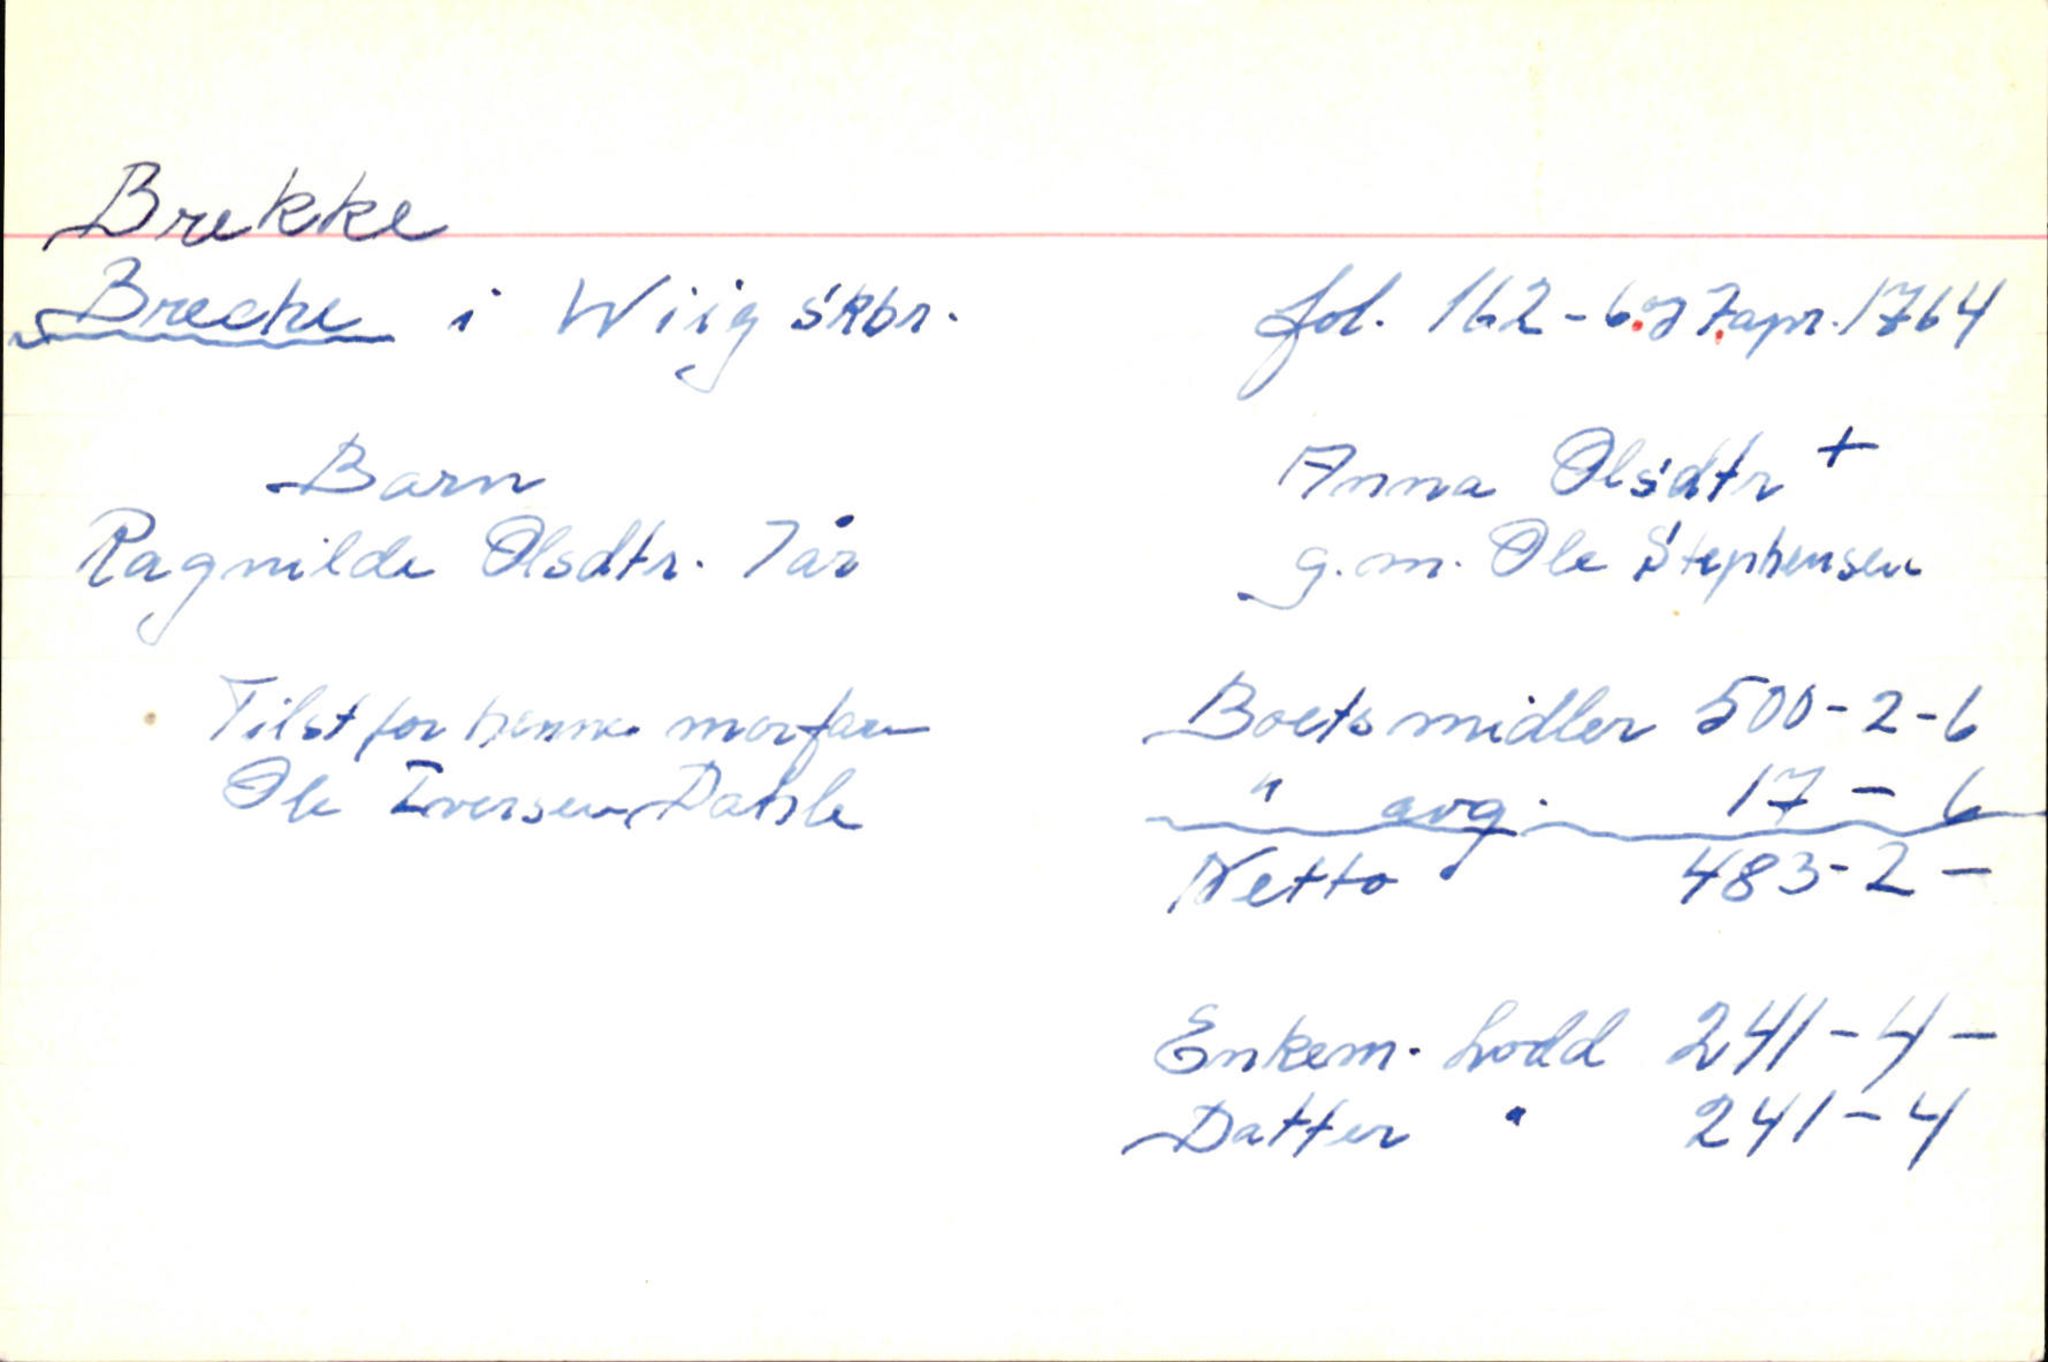 Brekke
Breche i Wiig skbr.
fol. 162 - 6. og 7. apr. 1764
Barn
Ragnilde Olsdtr. 7 år
Tilst for henne morfaren
Ole Iversen Dahle
Anna Olsdtr +
g.m. Ole Stephensen
Boets midler 500-2-6
" avg. 17 - 6
Netto 483-2 -
Enkem. Lodd 241-4 -
Datter " 241-4